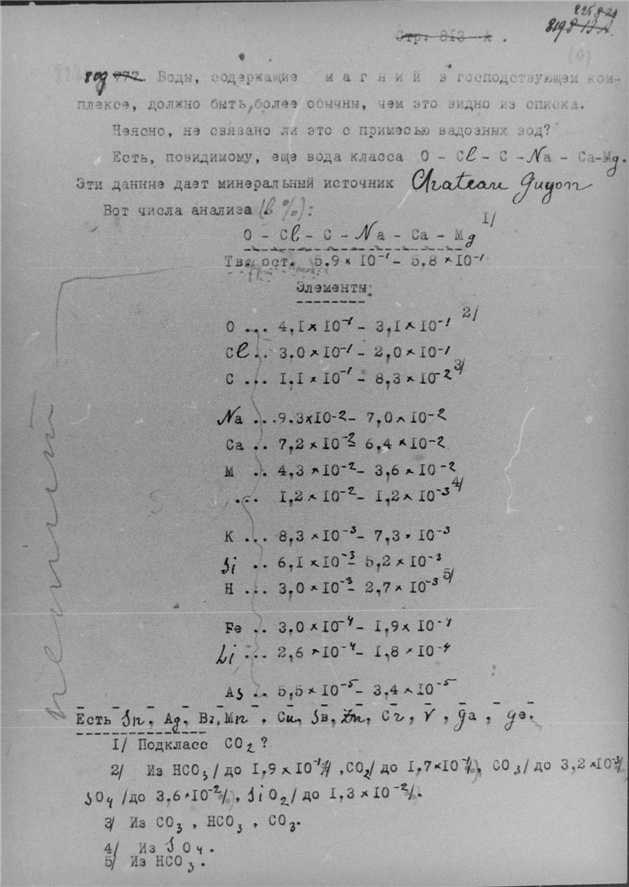 825 821
Стр. 813-А.
809 772 Воды, содержащие магний в господствующем ком-
плексе, должно быть, более обычны, чем это видно из списка.
Неясно, не связано ли это с примесью вадозных вод?
Есть, повидимому, еще вода класса O - Cl - C - Na - Ca-Mg.
Эти данные дает минеральный источник Chateau Guyon
Вот числа анализа (в %):
O - Cl - C - Na - Ca - Mg 1/
Тв. ост. 5,9 × 10⁻¹ - 5,8 × 10⁻¹
Элементы:
O ... 4,1×10⁻¹ - 3,1×10⁻¹ 2/
Cl.. 3,0×10⁻¹ - 2,0×10⁻¹
C ... 1,1×10⁻¹ - 8,3×10⁻² 3/
Na ...9.3×10⁻² - 7,0×10⁻²
Ca .. 7,2×10⁻² - 6,4×10⁻²
M .. 4,3×10⁻² - 3,6×10⁻²
... 1,2×10⁻² - 1,2×10⁻³ 4/
K ... 8,3×10⁻³ - 7,3×10⁻³
Si .. 6,1×10⁻³ - 5,2×10⁻³
H ... 3,0×10⁻³ - 2,7×10⁻³ 5/
Fe .. 3,0×10⁻⁴ - 1,9×10⁻¹
Li ... 2,6×10⁻⁴ - 1,8×10⁻⁴
As .. 5,5×10⁻⁵ - 3,4×10⁻⁵
петит
Есть Sn, Ag, Br, Mn, Cu, Sb, Zn, Cr, V, Ga, Ge.
1/ Подкласс CO₂?
2/ Из HCO₃/до 1,9×10⁻¹/, CO₂/до 1,7×10⁻¹/, CO₃/до 3,2×10⁻²/
SO₄/до 3,6×10⁻²/, SiO₂/до 1,3×10⁻²/.
3/ Из CO₃, HCO₃, CO₃.
4/ Из SO₄.
5/ Из HCO₃.